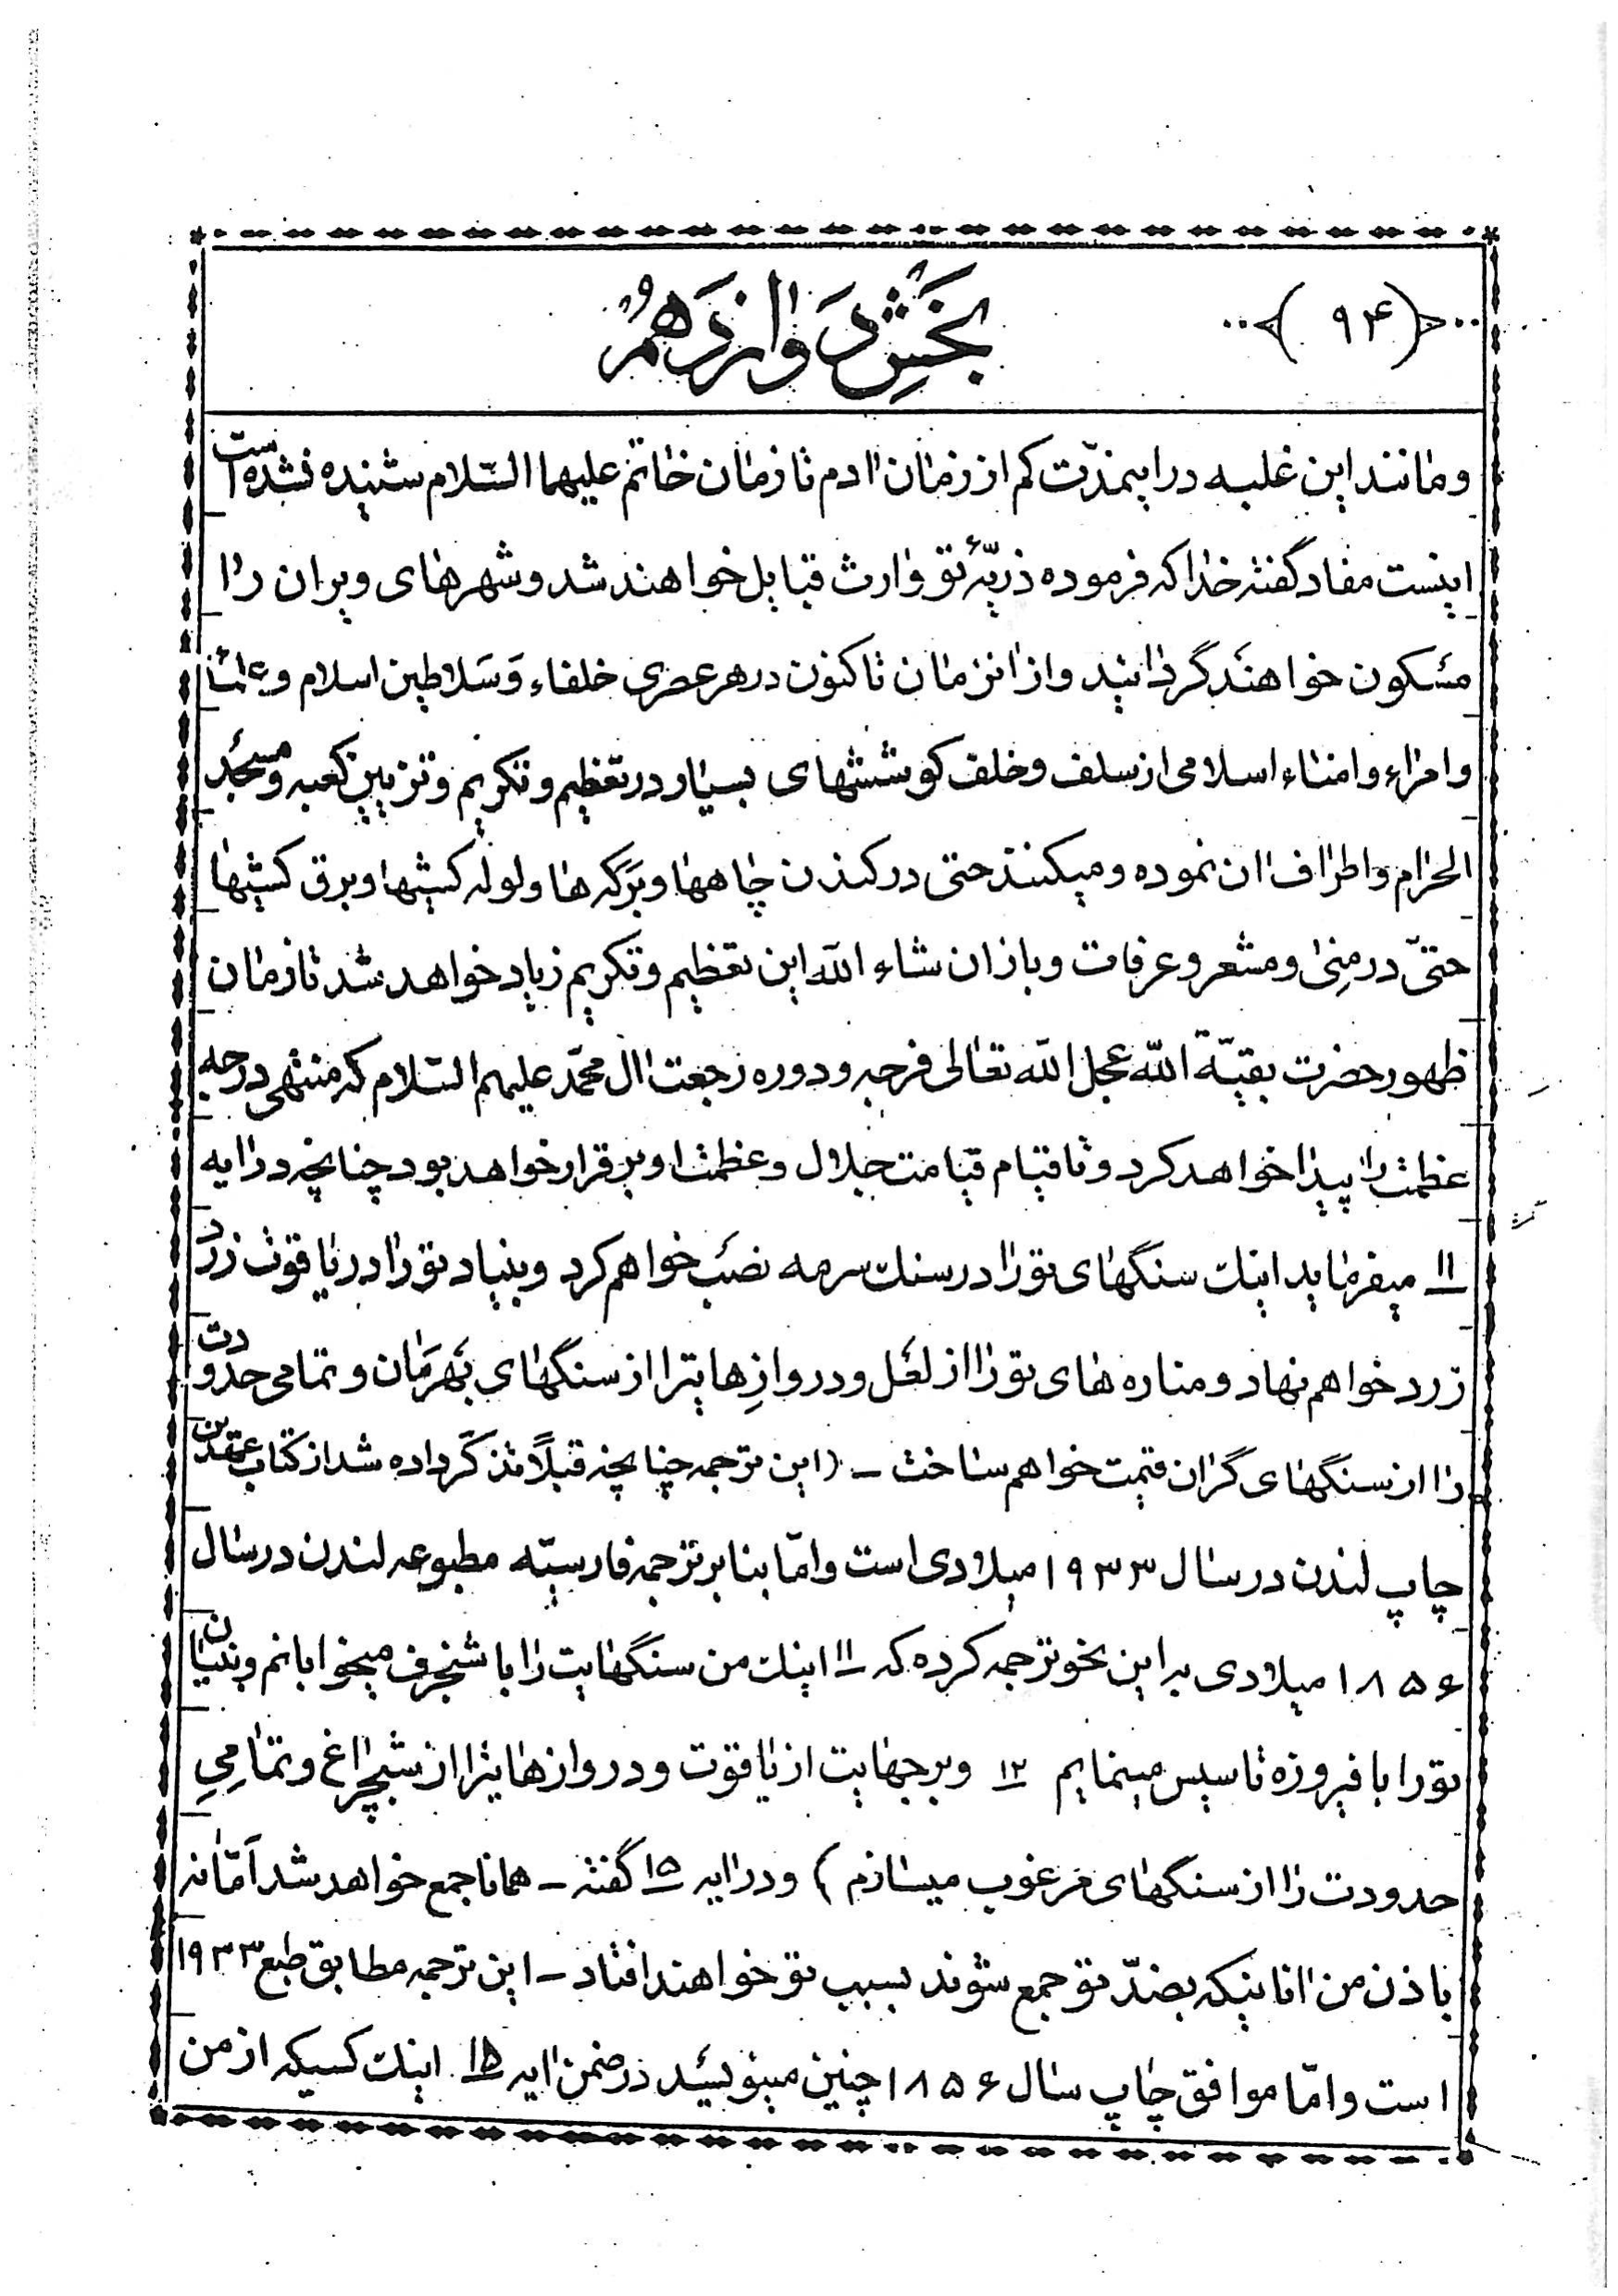 (۹۴)
بخش دوازدهم
و مانند این غلبه در اینمدّت کم از زمان ادم تا زمان خاتم علیهما السّلام شنیده نشده است
اینست مفاد گفته خدا که فرموده ذریّهٔ تو وارث قبایل خواهند شد و شهرهای ویران را
مسکون خواهند گردانید و از انزمان تاکنون در هر عصری خلفاء و سلاطین اسلام و علماء
و امراء و امناء اسلامی از سلف و خلف کوششهای بسیار در تعظیم و تکریم و تزیین کعبه و مسجد
الحرام و اطراف ان نموده و میکنند حتی در کندن چاهها و برکه ها و لوله کشیها و برق کشیها
حتّی در منی و مشعر و عرفات و باز ان شاء الله این تعظیم و تکریم زیاد خواهد شد تا زمان
ظهور حضرت بقیّة الله عجل الله تعالی فرجه و دوره رجعت ال محمّد علیهم السّلام که منتهی درجه
عظمت را پیدا خواهد کرد و تا قیام قیامت جلال و عظمت او برقرار خواهد بود چنانچه در ایه
۱۱ میفرماید اینك سنگهای تو را در سنك سرمه نصب خواهم کرد و بنیاد تو را در یاقوت زرد
زرد خواهم نهاد و مناره های تو را از لعل و دروازهایترا از سنگهای بهرمان و تمامی حدودت
را از سنگهای گران قیمت خواهم ساخت - (این ترجمه چنانچه قبلاً تذکّر داده شد از کتاب عهدین
چاپ لندن در سال ۱۹۳۳ میلادی است و امّا بنا بر ترجمه فارسیّه مطبوعه لندن در سال
۱۸۵۶ میلادی بر این نحو ترجمه کرده که ۱۱ اینك من سنگهایت را با شنجرف میخوابانم و بنیان
تو را با فیروزه تاسیس مینمایم ۱۲ و برجهایت از یاقوت و دروازهایترا از شبچراغ و تمامی
حدودت را از سنگهای مرغوب میسازم) و در ایه ۱۵ گفته - همانا جمع خواهد شد امّا نه
باذن من انانیکه بضدّ تو جمع شوند بسبب تو خواهند افتاد - این ترجمه مطابق طبع ۱۹۳۳
است و امّا موافق چاپ سال ۱۸۵۶ چنین مینویسد در ضمن ایه ۱۵ اینك کسیکه از من